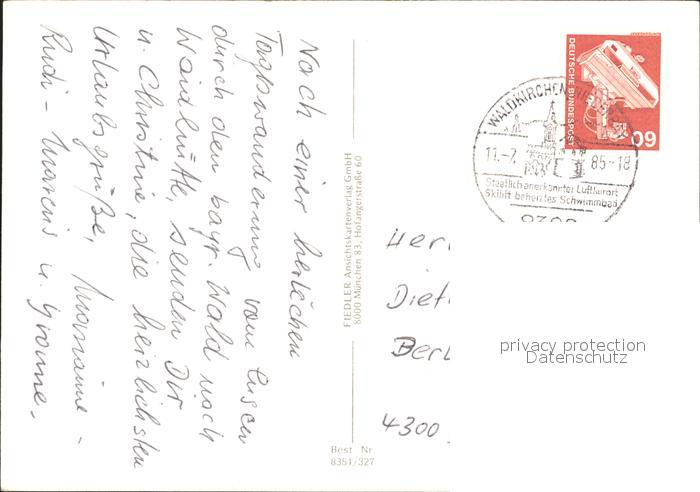 Nach einer herrlichen
Tageswanderung vom Lusen
durch den bayr. Wald nach
Waldhütte, senden Dir
u. Christine, die herzlichsten
Urlaubsgrüße, Marianne -
Rudi - Marcus u. Yvonne.
FIEDLER Ansichtskartenverlag GmbH
8000 München 83, Hofangerstraße 60
Best Nr
8351/327
DEUTSCHE BUNDESPOST
60
WALDKIRCHEN
11.-7. 85-18
Staatlich anerkannter Luftkurort
Skilift beheiztes Schwimmbad
Her
Diet
Berl
4300
privacy protection
Datenschutz